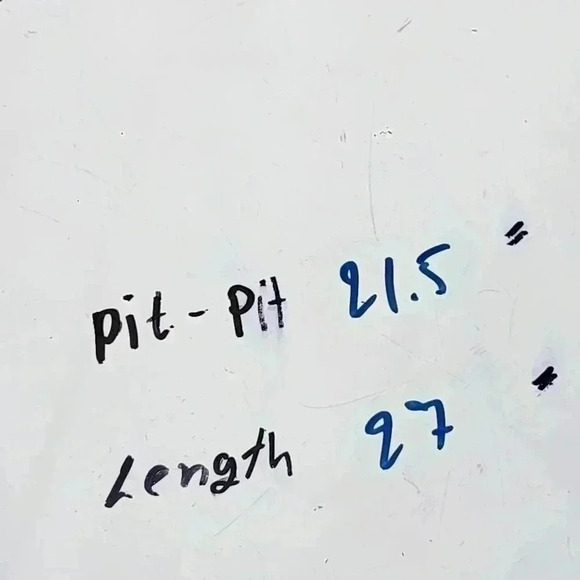 Pit - Pit 21.5 "
Length 27 "